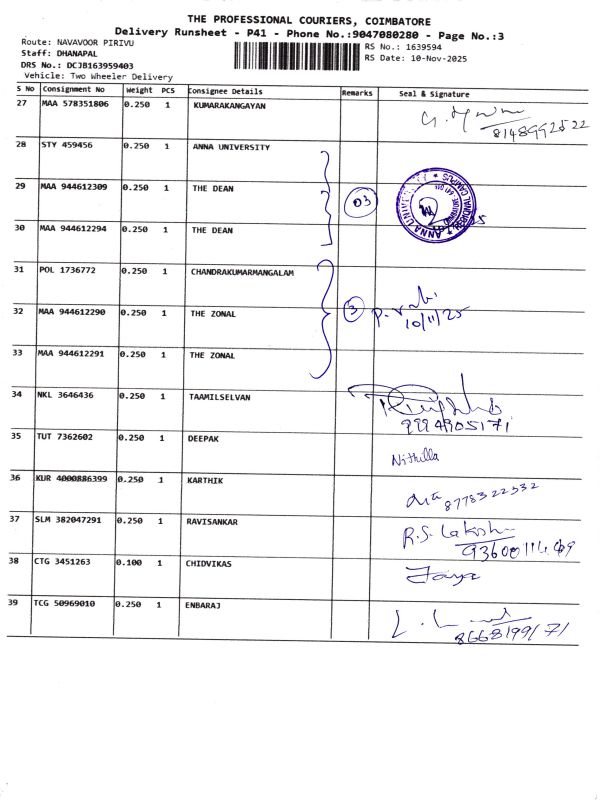 THE PROFESSIONAL COURIERS, COIMBATORE
Delivery Runsheet - P41 - Phone No.:9047080280 - Page No.:3
Route: NAVAVOOR PIRIVU
Staff: DHANAPAL
DRS No.: DCJB163959403
Vehicle: Two Wheeler Delivery
RS No.: 1639594
RS Date: 10-Nov-2025
S No Consignment No Weight PCS Consignee Details Remarks Seal & Signature
27 MAA 578351806 0.250 1 KUMARAKANGAYAN
8148992522
28 STY 459456 0.250 1 ANNA UNIVERSITY
29 MAA 944612309 0.250 1 THE DEAN 03
30 MAA 944612294 0.250 1 THE DEAN
31 POL 1736772 0.250 1 CHANDRAKUMARMANGALAM
32 MAA 944612290 0.250 1 THE ZONAL 3 P. Rabi
10/11/25
33 MAA 944612291 0.250 1 THE ZONAL
34 NKL 3646436 0.250 1 TAAMILSELVAN
9994905171
35 TUT 7362602 0.250 1 DEEPAK Nithilla
36 KUR 4000886399 0.250 1 KARTHIK 8778322332
37 SLM 382047291 0.250 1 RAVISANKAR R.S. Lakshm
38 CTG 3451263 0.100 1 CHIDVIKAS Jaya
39 TCG 50969010 0.250 1 ENBARAJ
8668199171